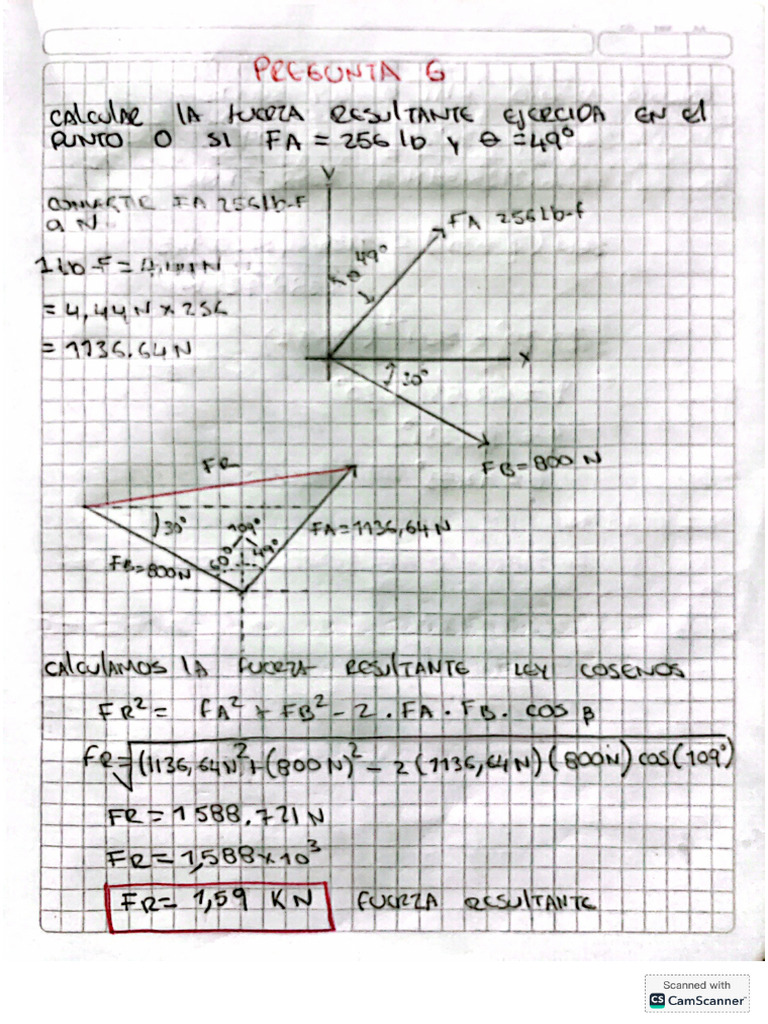 PREGUNTA 6
CALCULAR LA FUERZA RESULTANTE EJERCIDA EN El
PUNTO O SI FA = 256 lb y θ = 49°
CONVERTIR FA 256 lb-F
a N
y
FA 256 lb-f
49°
θ
1 lb-F = N
= 4,44 N x 256
= 1136.64 N
x
30°
FB = 800 N
FR
30°
109°
60°
49°
FA = 1136,64 N
FB = 800 N
CALCULAMOS lA FUERZA RESULTANTE LEY COSENOS
FR² = FA² + FB² - 2 . FA . FB . COS β
FR = √(1136,64 N²+(800 N)² - 2 (1136,64 N) (800 N) cos(109°)
FR = 1588.721 N
FR = 1,588 x 10³
FR = 1,59 KN FUERZA RESULTANTE
Scanned with
CS CamScanner